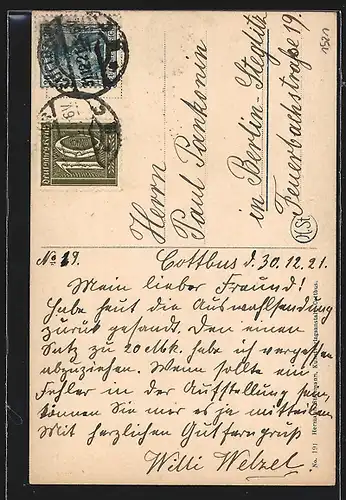 1521
Herrn
Paul Pankonin
in Berlin-Steglitz
Feuerbachstraße 19.
Deutsches Reich
10
No 19. Cottbus d. 30.12.21.
Mein lieber Freund!
Habe heut die Auswahlsendung
zurück gesandt. Den einen
Satz zu 20 Mk. habe ich vergessen
abzuziehen. Wenn sollte ein
Fehler in der Aufstellung sein,
können Sie mir es ja mitteilen
Mit herzlichen Gutferngruß
Willi Welzel
No. 191 Kunstverlagsanstalt, Cottbus.